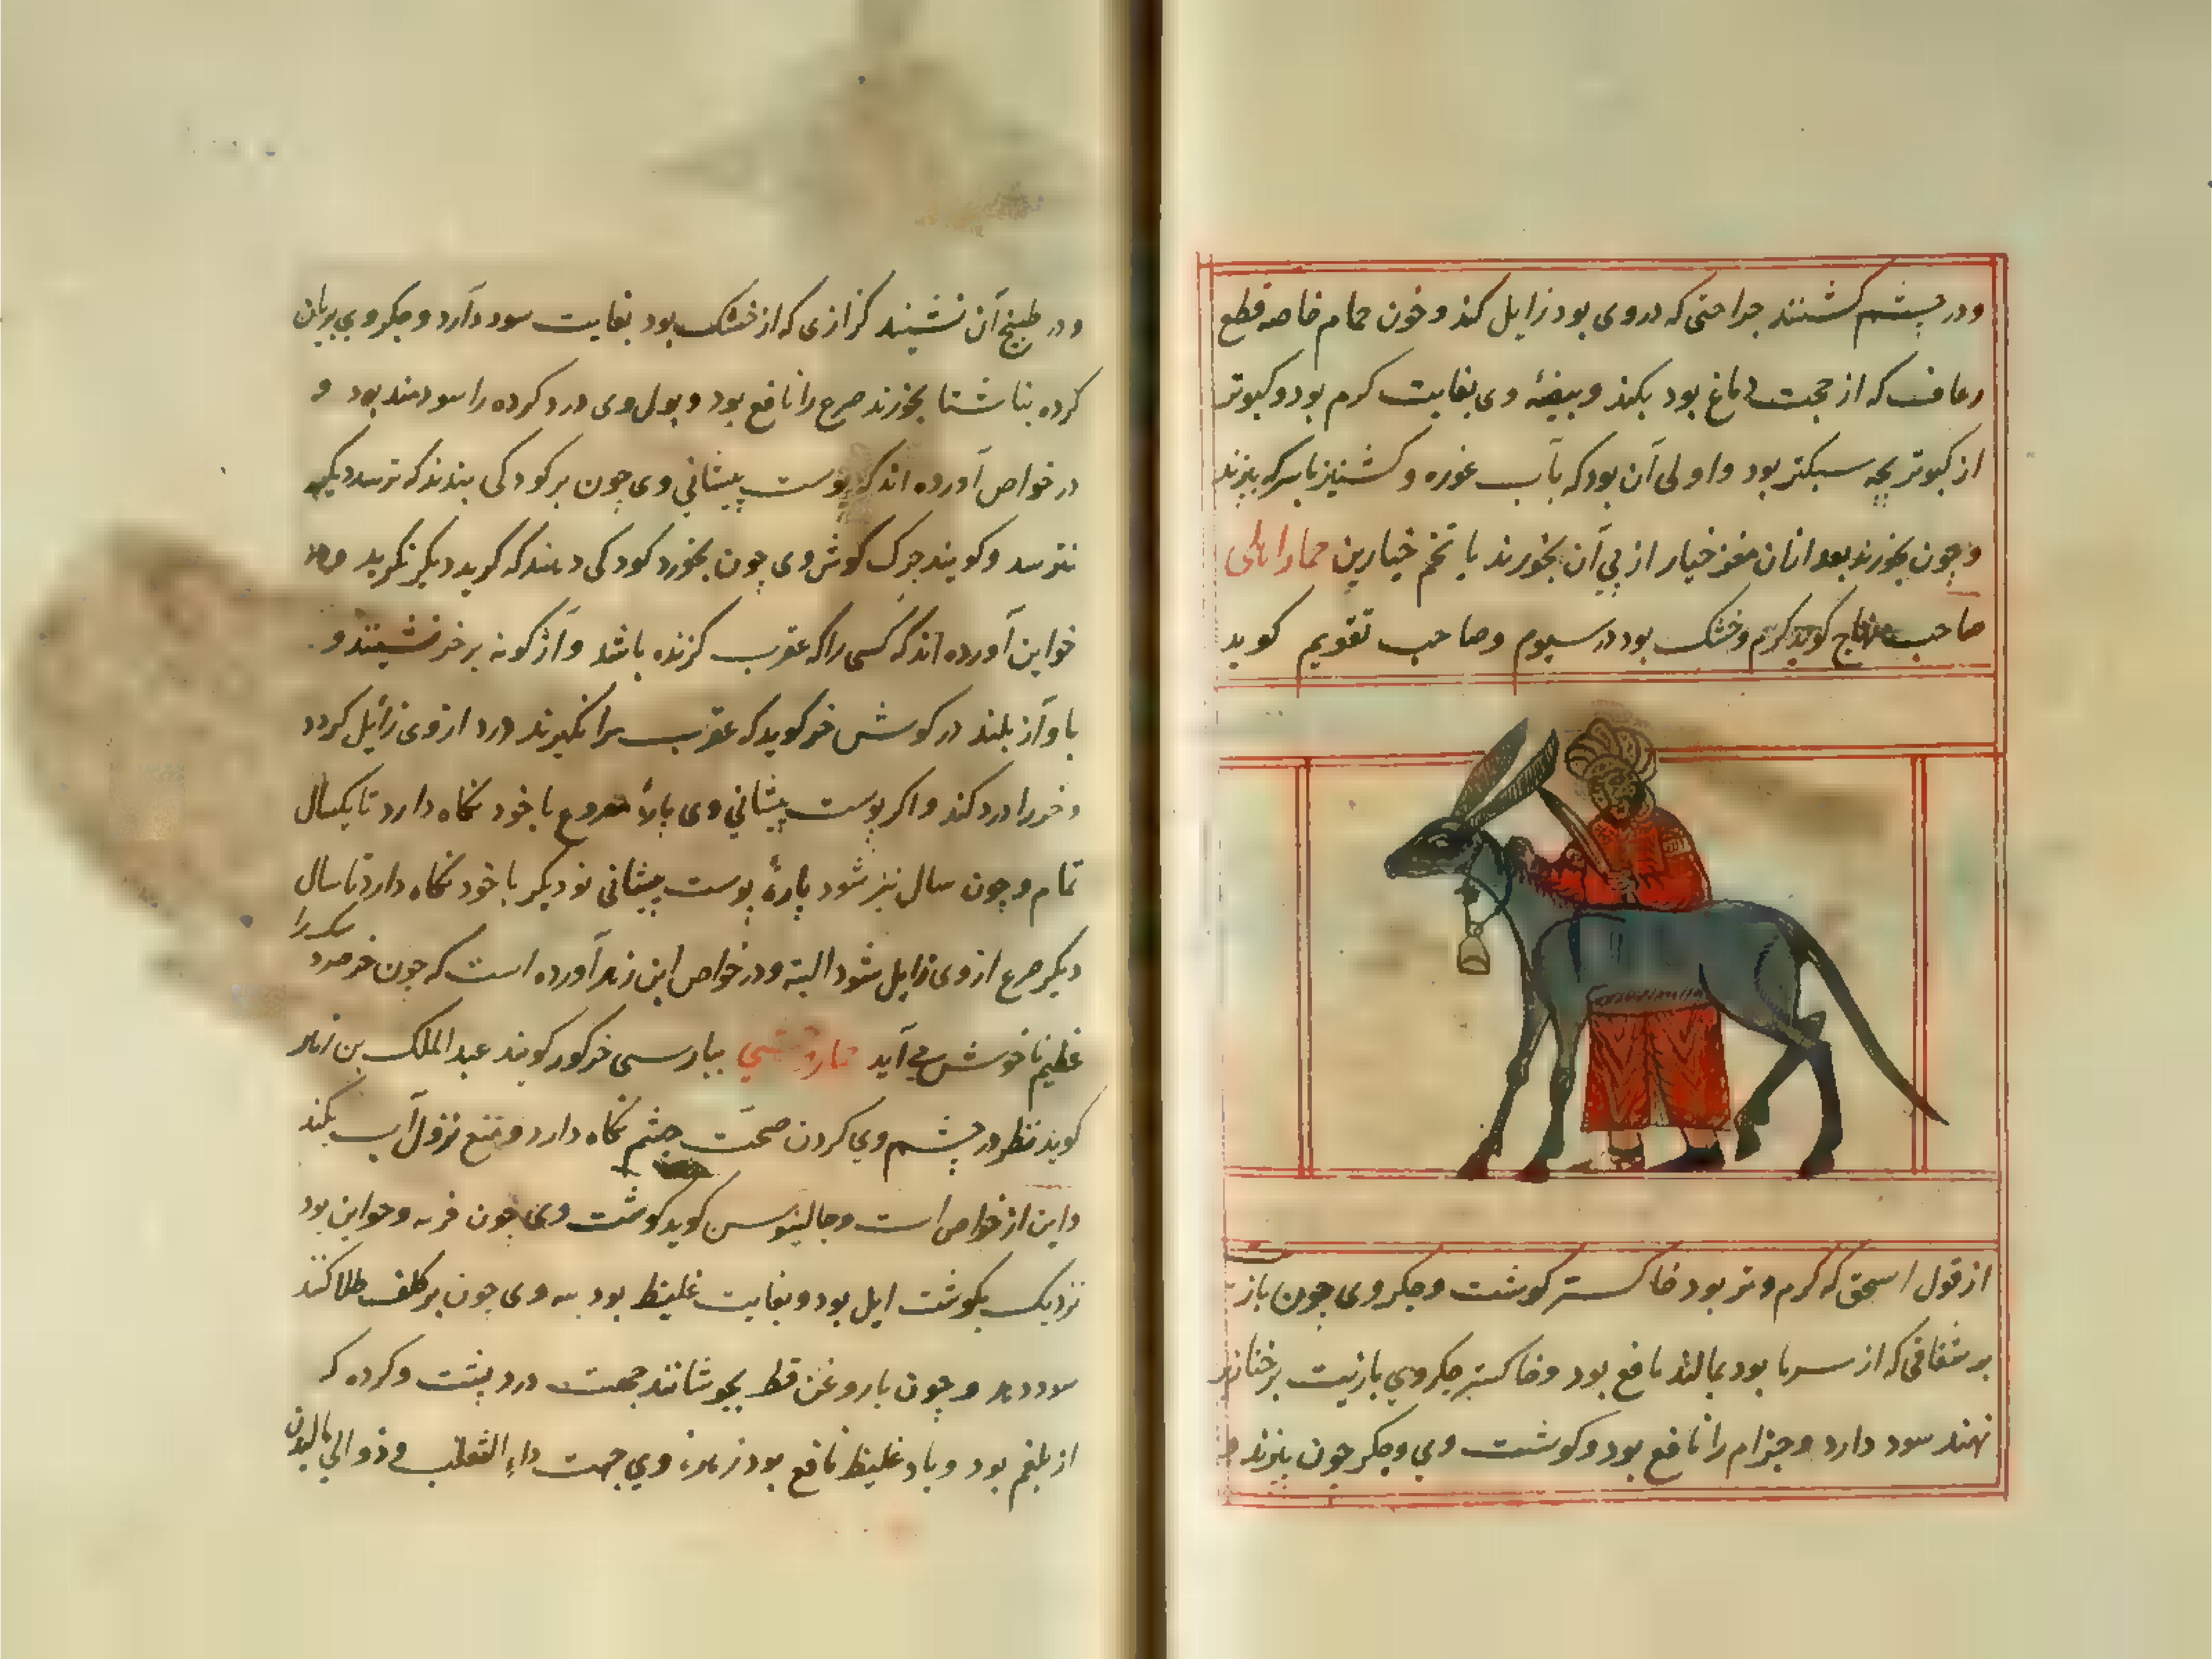 ودر چشم کشند جراحتی که در وی بود زایل کند و خون حمام خاصه قطع
رعاف که از حجب دماغ بود بکند و بیضهٔ وی بغایت کرم بود و کبوتر
از کبوتر بچه سبکتر بود و اولی آن بود که بآب غوره و کشنیز با سرکه بپزند
و چون بخورند بعد از آن مغز خیار از پی آن بخورند یا تخم خیارین حمار اهلی
صاحب منهاج کوید کرم و خشک بود در سیوم و صاحب تقویم کوید
از قول اسحق که کرم و تر بود خاکستر کوشت و جکر وی چون باز
بر شقاقی که از سرما بود بمالند نافع بود و خاکستر جکر وی بازیت بر خنازیر
نهند سود دارد و جذام را نافع بود و کوشت وی و جکر چون بپزند
و در طبیخ آن نشیند کزازی که از خشک بود بغایت سود دارد و جکر وی بریان
کرده بناشتا بخورند صرع را نافع بود و بول وی درد کرده را سودمند بود و
در خواص آورده اند که پوست پیشانی وی چون بر کودکی بندند که ترسد دیکر
نترسد و کویند چرک کوش وی چون بخورد کودکی دهند که کرید دیکر نکرید
خواین آورده اند که کسی را که عقرب کزنده باشد واژکونه بر خر نشیند و
باواز بلند در کوش خر کوید که عقرب مرا بکزید درد از وی زائل کردد
و خر را درد کند و اکر پوست پیشانی وی پارهٔ مصروع با خود نکاه دارد تا یکسال
تمام و چون سال نیز شود پارهٔ پوست پیشانی نو دیکر با خود نکاه دارد تا سال
دیکر صرع از وی زایل شود البته و در خواص ابن زهر آورده است که چون خر
سک را
عظیم ناخوش می آید حمار وحشی بپارسی خرکور کویند عبد الملک بن زهر
کوید نظر در چشم وی کردن صحت چشم نکاه دارد و منع نزول آب بکند
و این از خواص است و جالینوس کوید کوشت وی چون فربه و جوان بود
نزدیک بکوشت ایل بود و بغایت غلیظ بود پیه وی چون بر کلف طلا کنند
سود دهد و چون با روغن قسط بجوشانند جهت درد پشت و کرده که
از بلغم بود و باد غلیظ نافع بود زهرهٔ وی جهت داء الثعلب و دوالی مالیدن